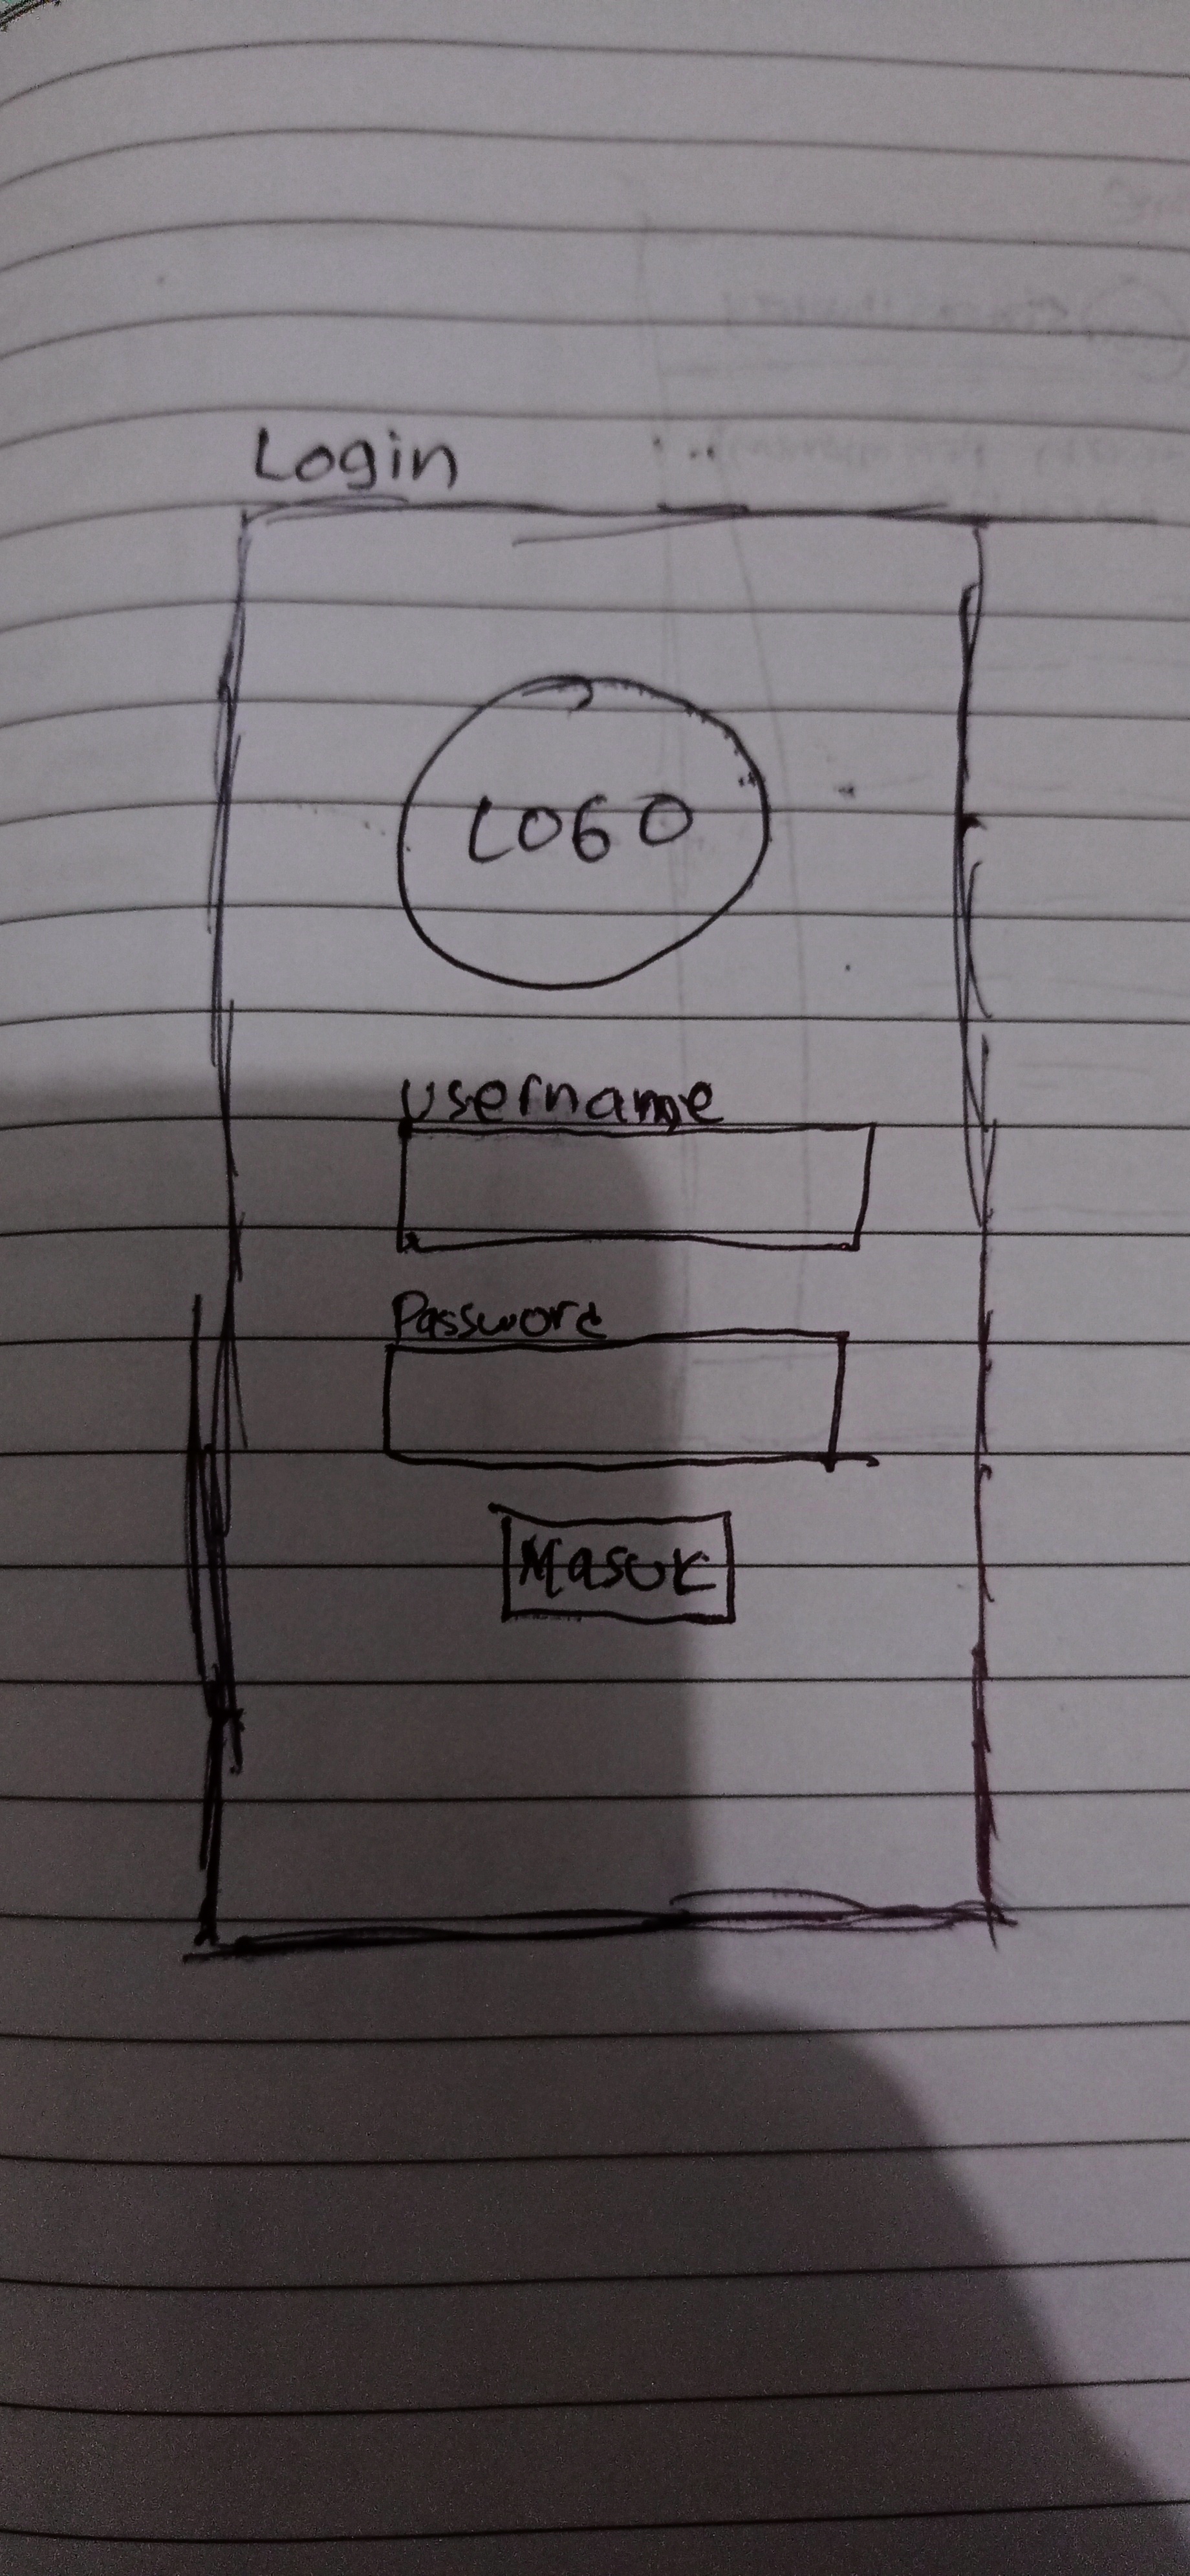 Login
LOGO
Username
Password
Masuk